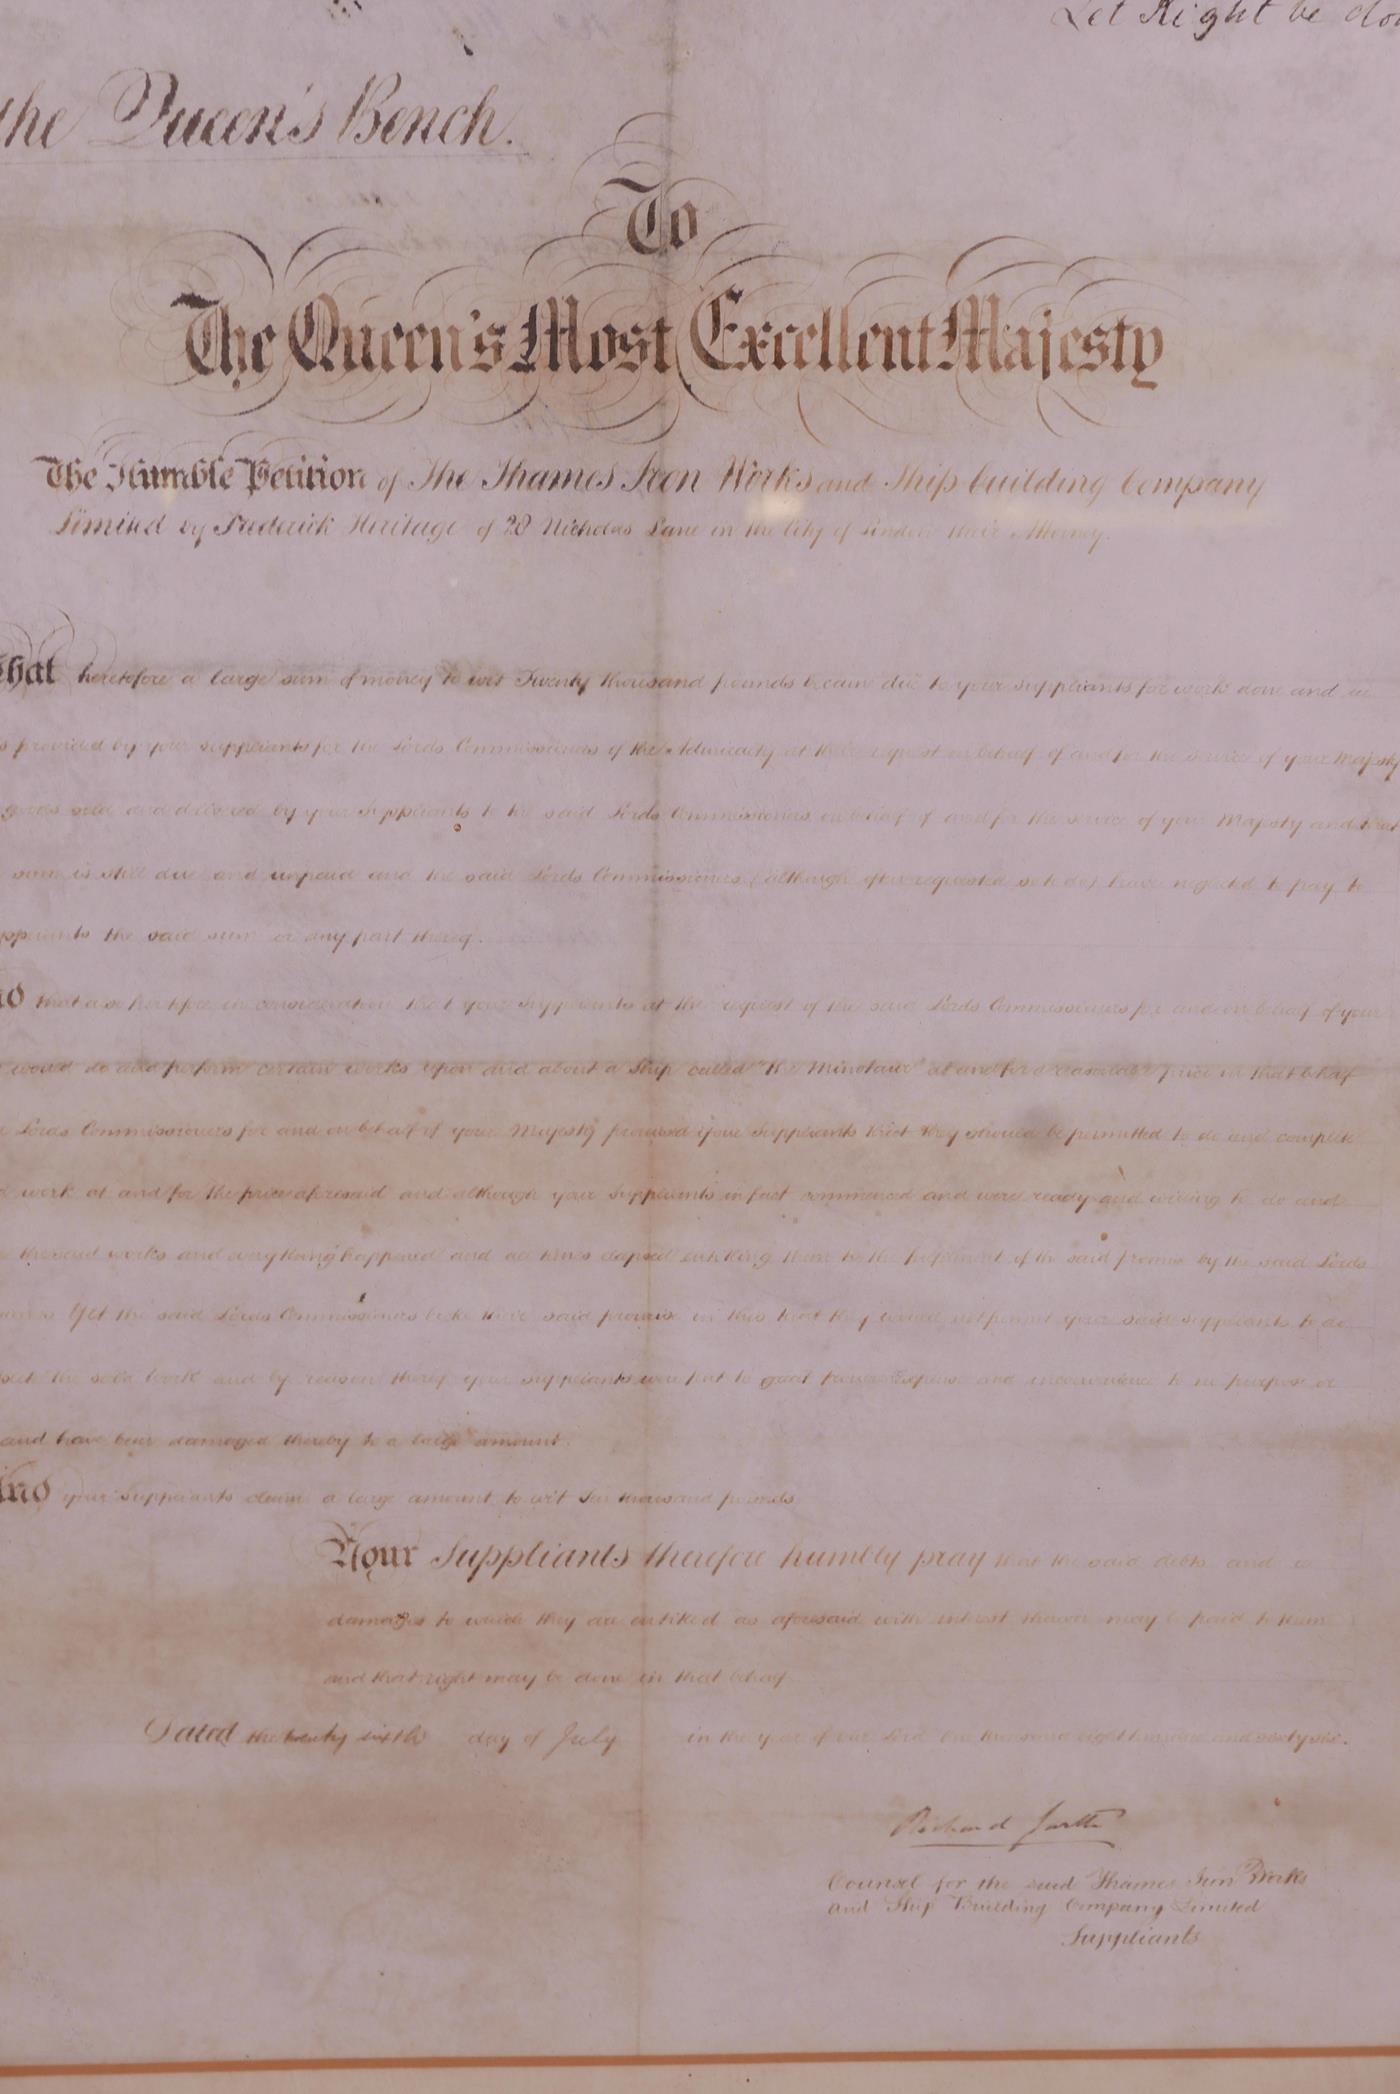 Let Right be do
the Queen's Bench.
To
The Queen's Most Excellent Majesty
The Humble Petition of The Thames Iron Works and Ship building Company
Limited by Frederick Heritage of 28 Nicholas Lane in the City of London their Attorney.
That heretofore a large sum of money to wit Twenty thousand pounds became due to your suppliants for work done and
s provided by your suppliants for the Lords Commissioners of the Admiralty at their request on behalf of and for the service of your Majesty
goods sold and delivered by your Suppliants to the said Lords Commissioners on behalf of and for the service of your Majesty and that
sum is still due and unpaid and the said Lords Commissioners (although often requested so to do) have neglected to pay to
ppliants the said sum or any part thereof.
nd that also heretofore in consideration that your Suppliants at the request of the said Lords Commissioners for and on behalf of your
would do and perform certain works upon and about a Ship called "the Minotaur" at and for a reasonable price in that behalf
Lords Commissioners for and on behalf of your Majesty promised your Suppliants that they should be permitted to do and complete
work at and for the price aforesaid and although your Suppliants in fact commenced and were ready and willing to do and
the said works and everything happened and all times elapsed entitling them to the fulfilment of the said promise by the said Lords
Yet the said Lords Commissioners broke their said promise in this that they would not permit your said suppliants to do
the said work and by reason thereof your suppliants were put to great Expense and inconvenience to no purpose or
and have been damaged thereby to a large amount.
And your Suppliants claim a large amount to wit Ten thousand pounds
Your Suppliants therefore humbly pray that the said debts and
damages to which they are entitled as aforesaid with interest thereon may be paid to them
and that right may be done in that behalf
Dated the twenty sixth day of July in the year of our Lord One thousand eight hundred and sixty six.
Richard Garth
Counsel for the said Thames Iron Works
and Ship Building Company Limited
Suppliants